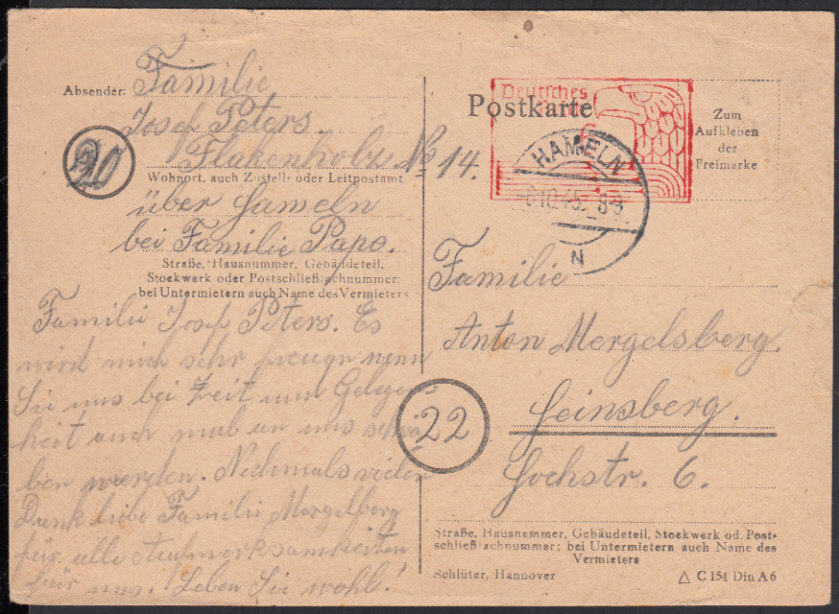 Absender: Familie
Josef Peters.
Flakenholz No 14.
20
Wohnort, auch Zustell- oder Leitpostamt
über Hameln
bei Familie Papo.
Straße, Hausnummer, Gebäudeteil,
Stockwerk oder Postschließfachnummer;
bei Untermietern auch Name des Vermieters
Familie Josef Peters. Es
wird mich sehr freugn wenn
Sie uns bei Zeit und Gelegens
heit auch mal an uns schrei
ben werden. Nochmals vielen
Dank liebe Familie Mergelberg
für alle Aufmerksamkeiten
für uns. Leben Sie wohl!
Postkarte
Deutsches
Reich
HAMELN
6.10.45. 8-9
N
Zum
Aufkleben
der
Freimarke
Familie
Anton Mergelsberg.
22
Heinsberg.
Hochstr. 6.
Straße, Hausnummer, Gebäudeteil, Stockwerk od. Post-
schließfachnummer; bei Untermietern auch Name des
Vermieters
Schlüter, Hannover
△ C 154 Din A 6